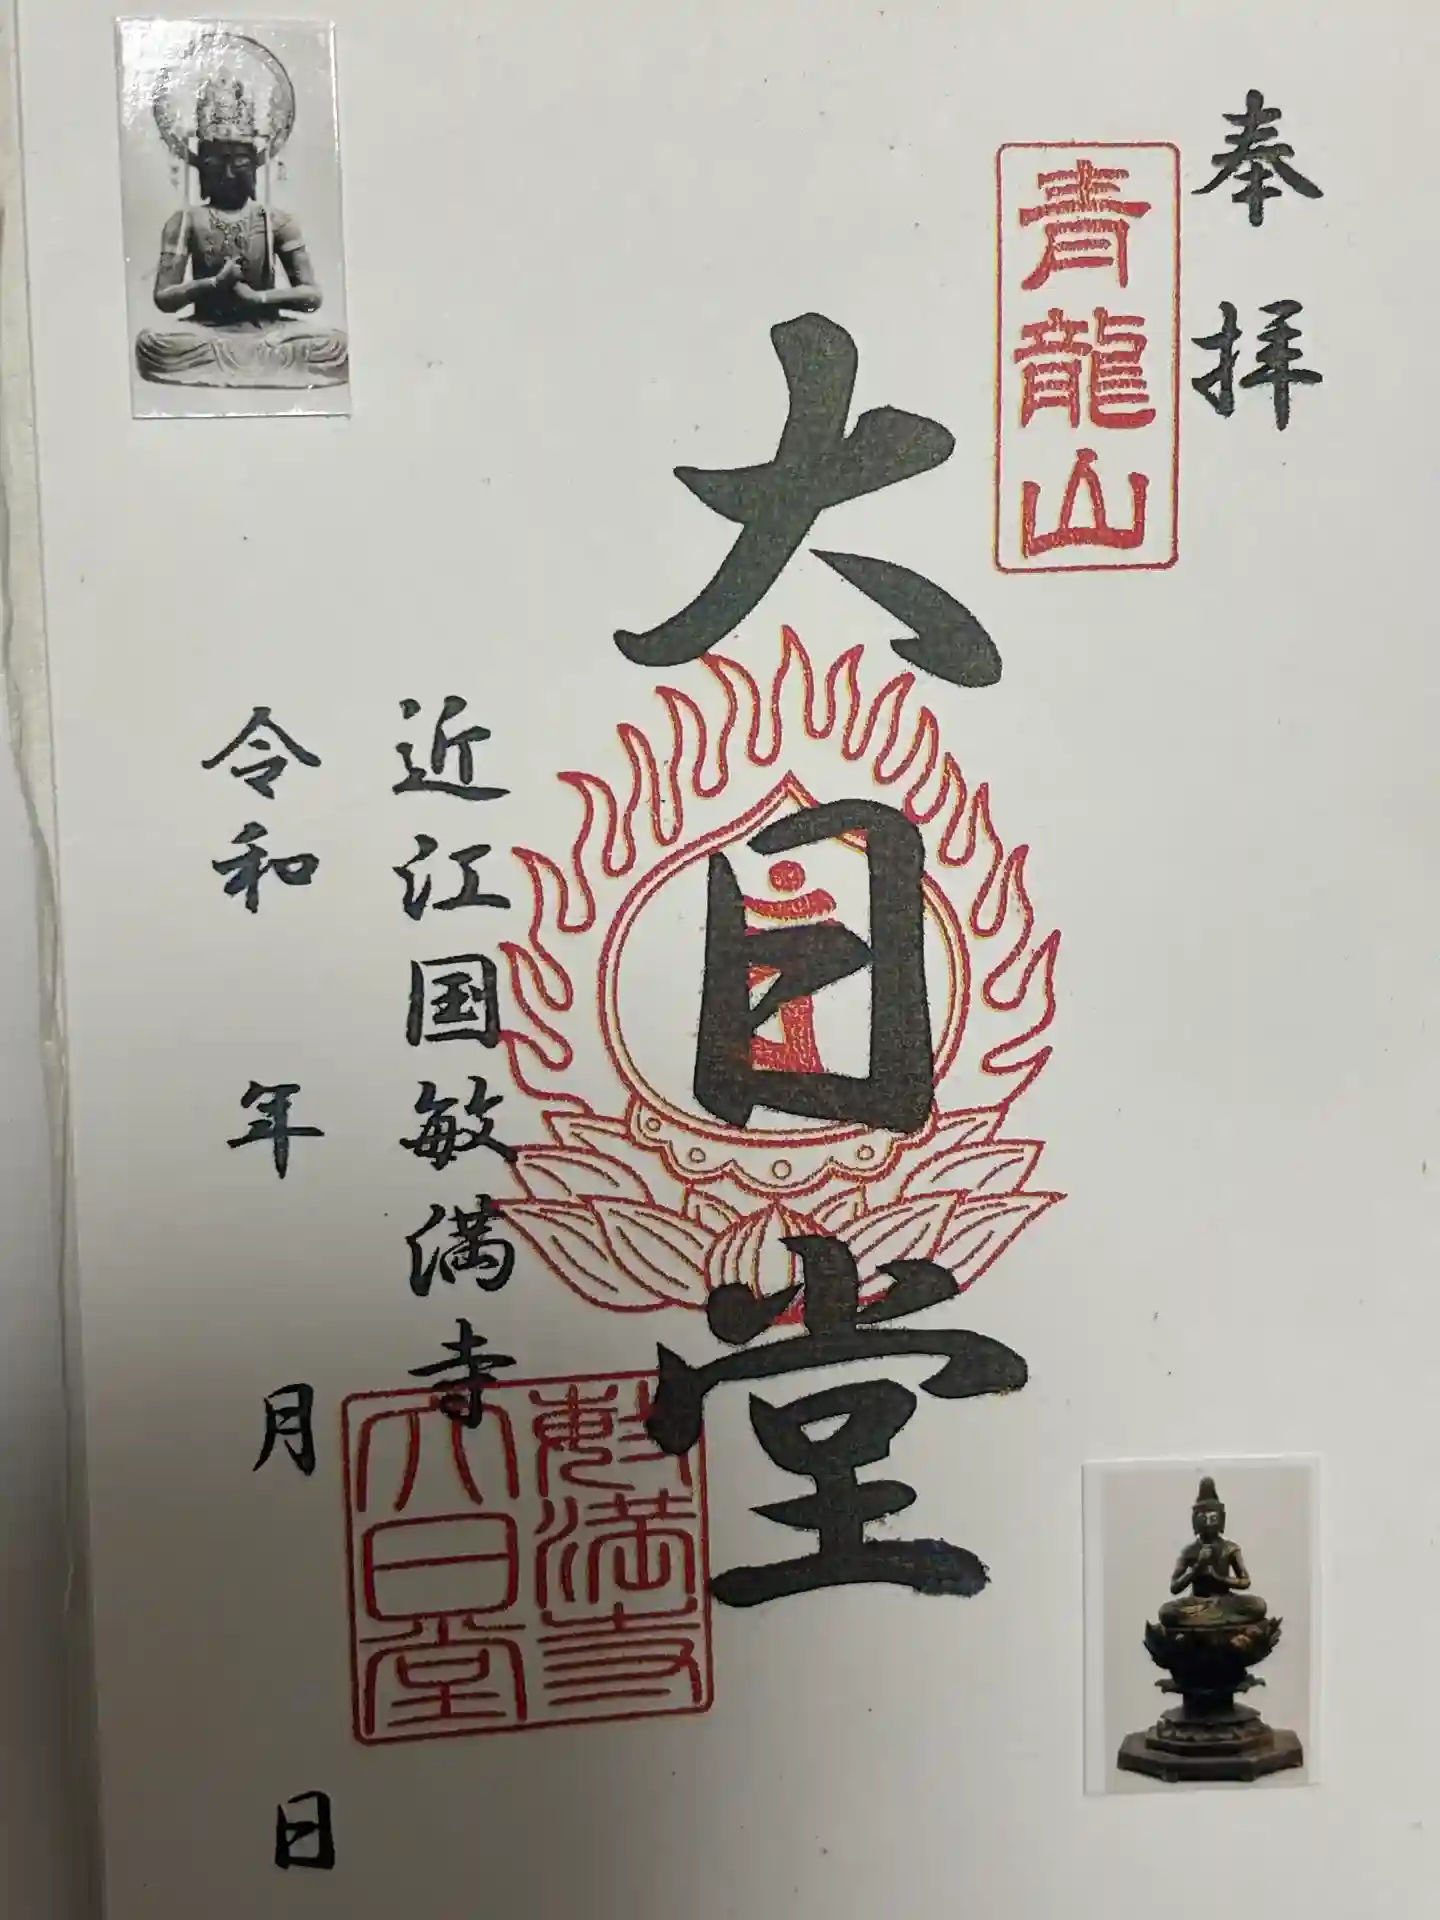 奉拝
青龍山
大日堂
近江国敏満寺
敏満寺
大日堂
令和 年 月 日